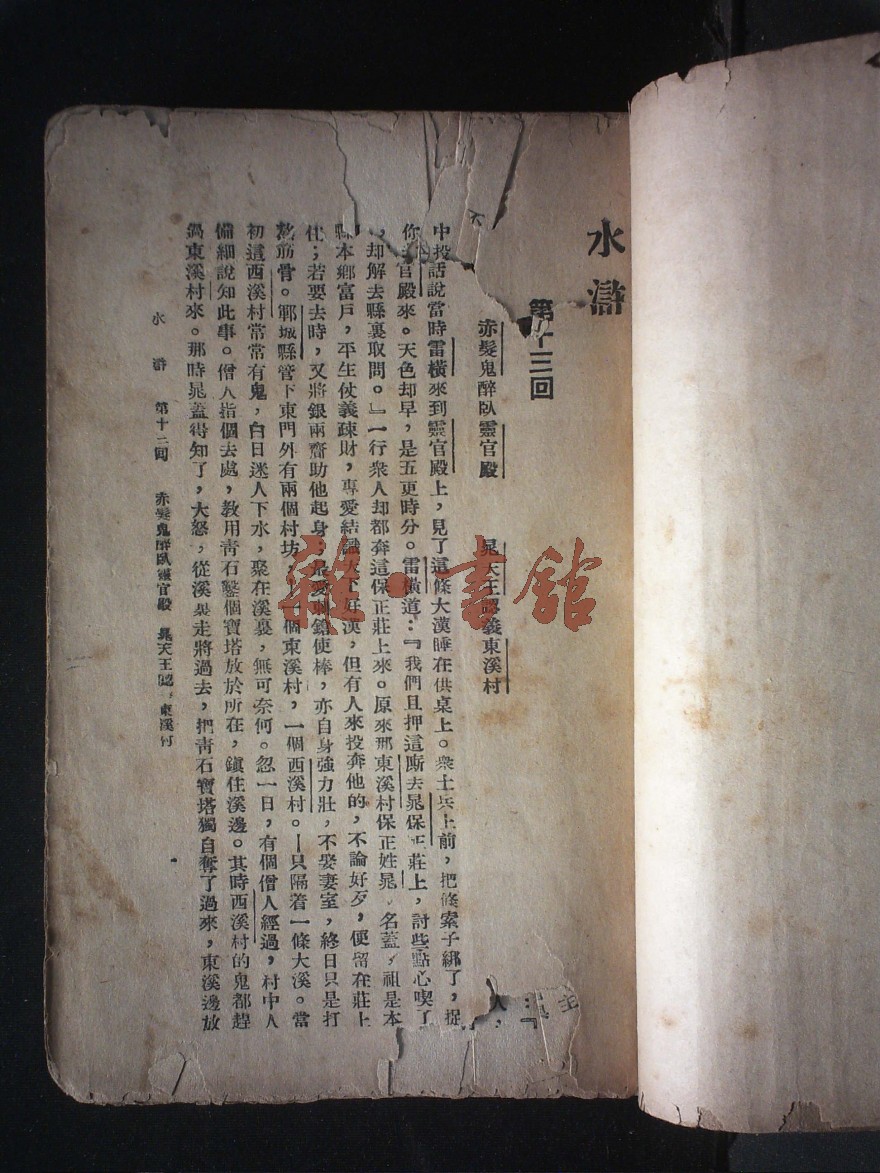 水滸
第十三回
赤髮鬼醉臥靈官殿 晁天王認義東溪村
話說當時雷橫來到靈官殿上，見了這條大漢睡在供桌上。衆土兵上前，把條索子綁了，捉
你 官殿來。天色却早，是五更時分。雷橫道：『我們且押這厮去晁保正莊上，討些點心喫了
，却解去縣裏取問。』一行衆人却都奔這保正莊上來。原來那東溪村保正姓晁，名蓋，祖是本
縣本鄉富戶，平生仗義疎財，專愛結識天下好漢，但有人來投奔他的，不論好歹，便留在莊上
住；若要去時，又將銀兩齎助他起身，最愛刺鎗使棒，亦自身強力壯，不娶妻室，終日只是打
熬筋骨。鄆城縣管下東門外有兩個村坊，一個東溪村，一個西溪村。—只隔着一條大溪。當
初這西溪村常常有鬼，白日迷人下水，聚在溪裏，無可奈何。忽一日，有個僧人經過，村中人
備細說知此事。僧人指個去處，教用青石鑿個寶塔放於所在，鎭住溪邊。其時西溪村的鬼都趕
過東溪村來。那時晁蓋得知了，大怒，從溪裏走將過去，把青石寶塔獨自奪了過來，東溪邊放
水滸 第十三回 赤髮鬼醉臥靈官殿 晁天王認 東溪村
雜·書舘